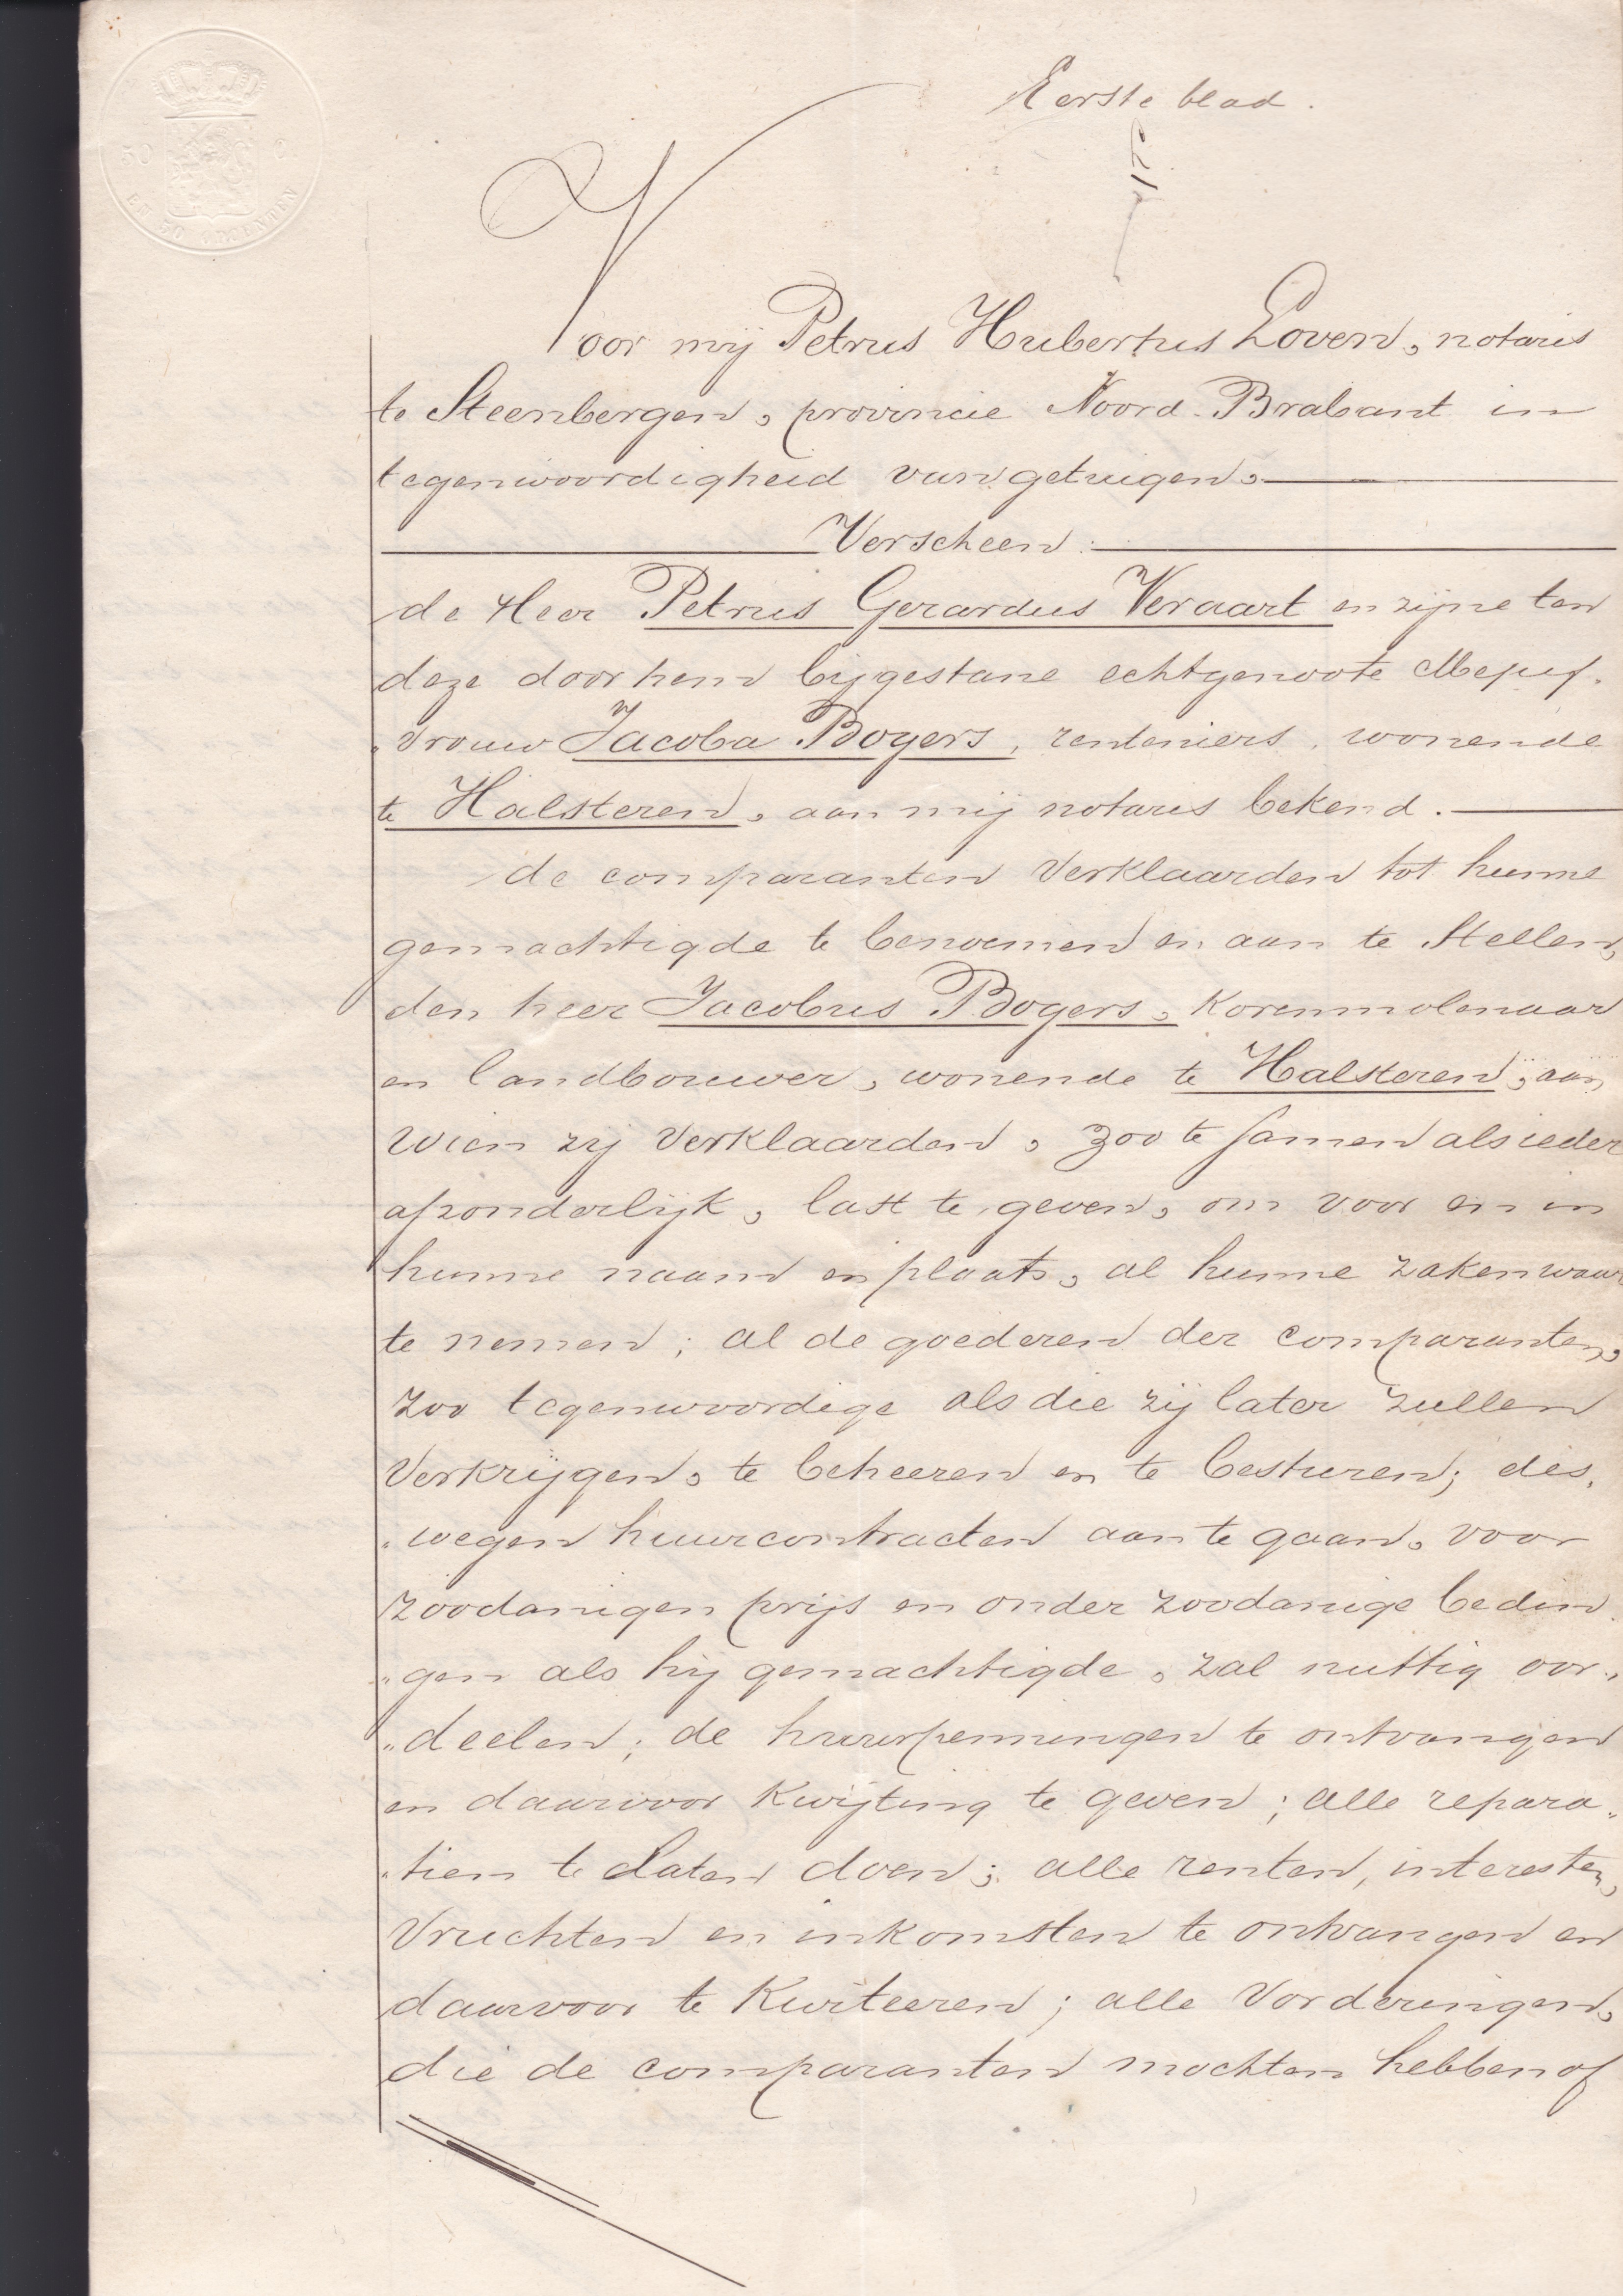 Eerste blad.
Voor mij Petrus Hubertus Loven, notaris
te Steenbergen, provincie Noord-Brabant in
tegenwoordigheid van getuigen,
Verscheen:
de Heer Petrus Gerardus Veraart en zijne ten
deze door hem bijgestane echtgenoote Mejuf-
„vrouw Jacoba Bogers, renteniers, wonende
te Halsteren, aan mij notaris bekend.
de comparanten verklaarden tot hunne
gemachtigde te benoemen en aan te stellen,
den heer Jacobus Bogers, korenmolenaar
en landbouwer, wonende te Halsteren, aan
wien zij verklaarden, zoo te samen als ieder
afzonderlijk, last te geven, om voor en in
hunne naam en plaats, al hunne zaken waar
te nemen; al de goederen der comparanten,
zoo tegenwoordige als die zij later zullen
verkrijgen, te beheeren en te besturen; des-
„wegen huurcontracten aan te gaan, voor
zoodanigen prijs en onder zoodanige bedin-
„gen als hij gemachtigde, zal nuttig oor-
„deelen; de huurpenningen te ontvangen
en daarvoor kwijting te geven; alle repara-
„tien te laten doen; alle renten, interesten,
vruchten en inkomsten te ontvangen en
daarvoor te kwiteeren; alle vorderingen,
die de comparanten mochten hebben of